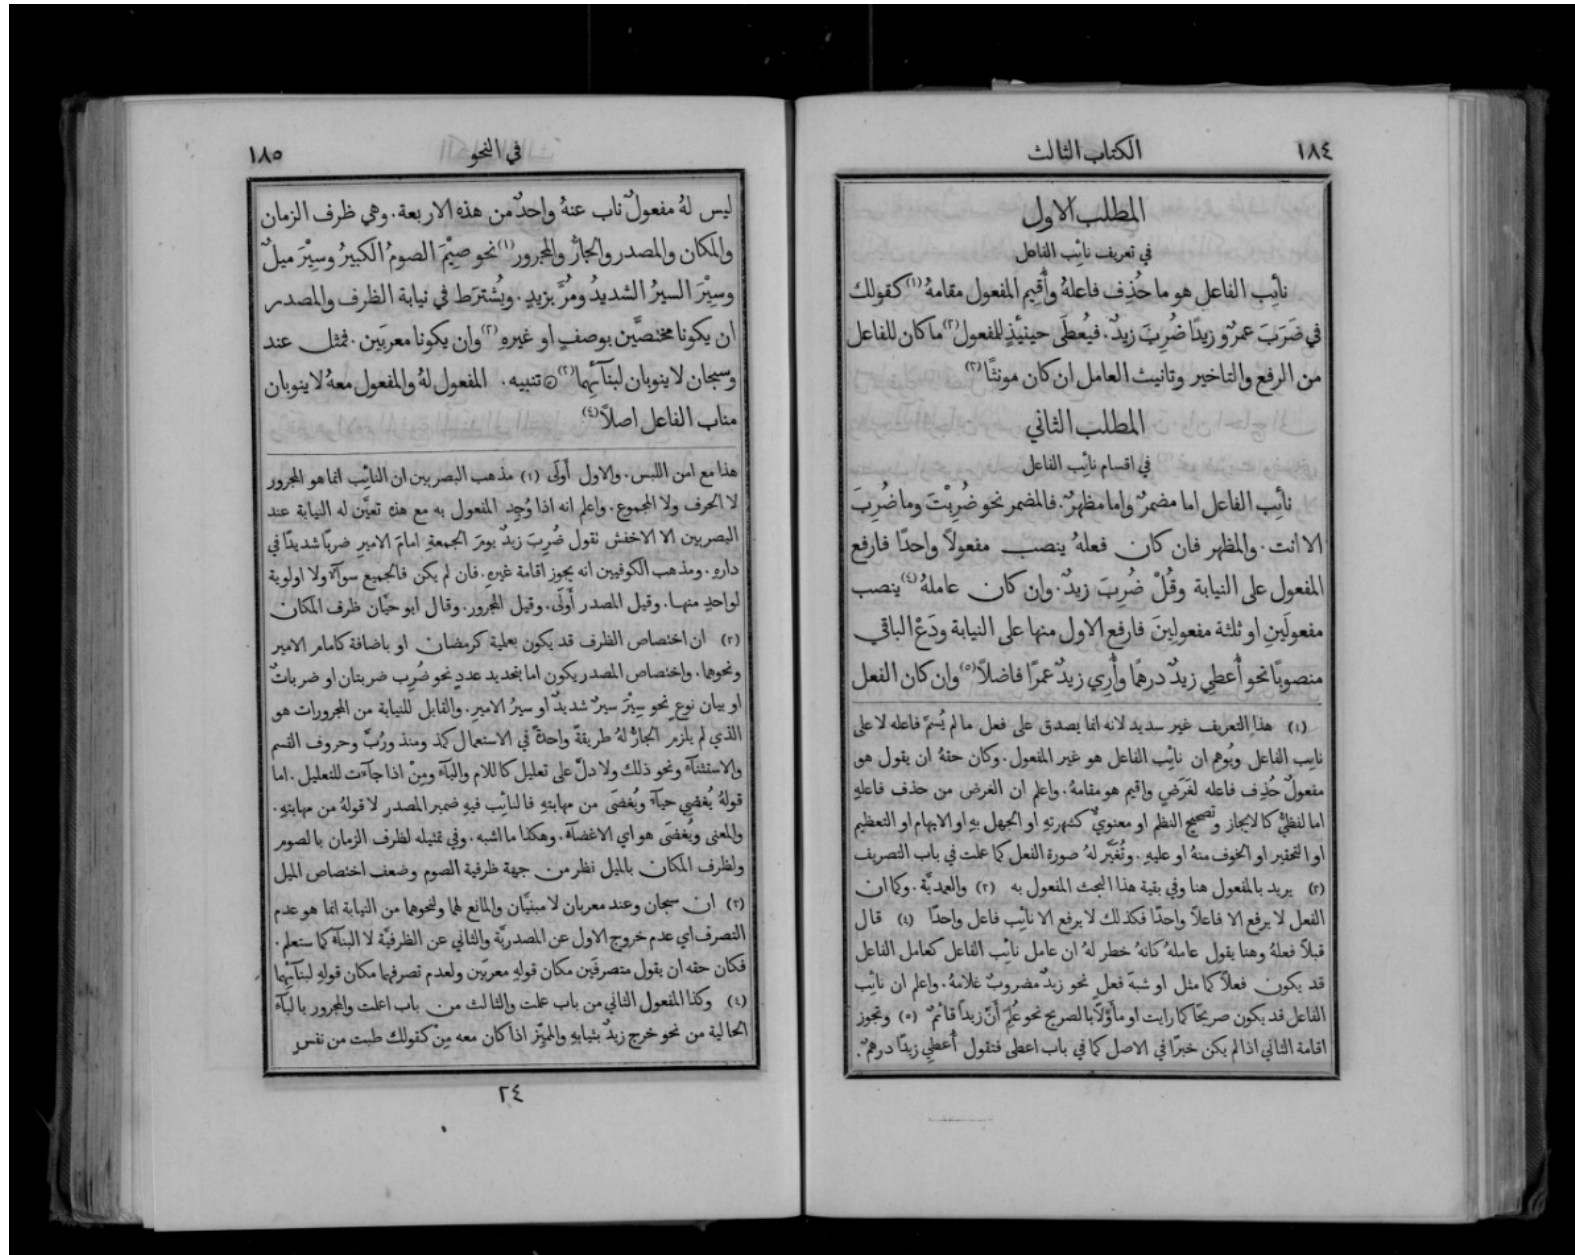 ١٨٤
الكتاب الثالث
المطلب الاول
في تعريف نائِب الفاعل
نائِب الفاعل هو ما حُذِف فاعلهُ وأُقيِم المفعول مقامهُ (١) كقولك
في ضَرَبَ عمرٌو زيدًا ضُرِبَ زيدٌ. فيُعطَى حينئِذٍ للمفعول (٢) ما كان للفاعل
من الرفع والتاخير وتانيث العامل ان كان مونثًا (٣)
المطلب الثاني
في اقسام نائِب الفاعل
نائِب الفاعل اما مضمرٌ واما مظهرٌ. فالمضمر نحو ضُرِبْتَ وما ضُرِبَ
الا انت. والمظهر فان كان فعلهُ ينصب مفعولاً واحدًا فارفع
المفعول على النيابة وقُلْ ضُرِبَ زيدٌ. وان كان عاملهُ (٤) ينصب
مفعولَينِ او ثلثة مفعولِينَ فارفع الاول منها على النيابة ودَعْ الباقي
منصوبًا نحو أُعطِي زيدٌ درهمًا وأُرِي زيدٌ عمرًا فاضلاً (٥) وان كان الفعل
(١) هذا التعريف غير سديد لانه انما يصدق على فعل ما لم يُسمَّ فاعله لا على
نايب الفاعل ويُوهِم ان نائِب الفاعل هو غير المفعول. وكان حقهُ ان يقول هو
مفعولٌ حُذِف فاعله لغَرَضٍ واقيم هو مقامهُ. واعلم ان الغرض من حذف فاعلهِ
اما لفظيٌّ كالايجاز وتصحيح النظم او معنويٌّ كشهرتهِ او الجهل بهِ او الابهام او التعظيم
او التحقير او الخوف منهُ او عليهِ. وتُغيَّر لهُ صورة الفعل كما علمت في باب التصريف
(٢) يريد بالمفعول هنا وفي بقية هذا البحث المفعول به (٣) والعمديَّة. وكما ان
الفعل لا يرفع الا فاعلاً واحدًا فكذلك لا يرفع الا نائِب فاعل واحدًا (٤) قال
قبلاً فعلهُ وهنا يقول عاملهُ كانهُ خطر لهُ ان عامل نائِب الفاعل كعامل الفاعل
قد يكون فعلاً كما مثل او شبهَ فعلٍ نحو زيدٌ مضروبٌ غلامهُ. واعلم ان نائِب
الفاعل قد يكون صريحًا كما رايت او مأوّلاً بالصريح نحو عُلِمَ أنّ زيداً قائمٌ (٥) وتجوز
اقامة الثاني اذا لم يكن خبرًا في الاصل كما في باب اعطى فتقول أُعطِي زيدًا درهمٌ.
في النحو
١٨٥
ليس لهُ مفعولٌ ناب عنهُ واحدٌ من هذه الاربعة. وهي ظرف الزمان
والمكان والمصدر والجارُّ والمجرور (١) نحو صِيْمَ الصومُ الكبيرُ وسِيْرَ ميلٌ
وسِيْرَ السيرُ الشديدُ ومُرَّ بزيدٍ. ويُشترَط في نيابة الظرف والمصدر
ان يكونا مختصَّين بوصفٍ او غيرهِ (٢) وان يكونا معربَين. فمثل عند
وسبحان لا ينوبان لبنآئِهما (٣) ⊙ تنبيه. المفعول لهُ والمفعول معهُ لا ينوبان
مناب الفاعل اصلاً (٤)
هذا مع امن اللبس. والاول أَولَى (١) مذهب البصريين ان النائِب انما هو المجرور
لا الحرف ولا المجموع. واعلم انه اذا وُجِد المفعول به مع هذه تعيَّن له النيابة عند
البصريين الا الاخفش تقول ضُرِبَ زيدٌ يومَ الجمعةِ امامَ الاميرِ ضربًا شديدًا في
دارهِ. ومذهب الكوفيين انه يجوز اقامة غيرهِ. فان لم يكن فالجميع سوآءٌ ولا اولوية
لواحدٍ منها. وقيل المصدر أَولَى. وقيل المجرور. وقال ابو حيَّان ظرف المكان
(٢) ان اختصاص الظرف قد يكون بعلمية كرمضان او باضافة كامام الامير
ونحوهما. واختصاص المصدر يكون اما بتحديد عددٍ نحو ضُرِب ضربتان او ضرباتٌ
او بيان نوعٍ نحو سِيْرَ سيرٌ شديدٌ او سيرُ الاميرِ. والقابل للنيابة من المجرورات هو
الذي لم يلزم الجارُّ لهُ طريقةً واحدةً في الاستعمال كمذ ومنذ ورُبَّ وحروف القسم
والاستثنآءِ ونحو ذلك ولا دلَّ على تعليل كاللام والبآءِ ومِنْ اذا جآءت للتعليل. اما
قولهُ يُغضِي حيآءً ويُغضَى من مهابتهِ فالنائِب فيهِ ضمير المصدر لا قولهُ من مهابتهِ.
والمعنى ويُغضَى هو اي الاغضآءُ. وهكذا ما اشبه. وفي تمثيله لظرف الزمان بالصوم
ولظرف المكان بالميل نظر من جهة ظرفية الصوم وضعف اختصاص الميل
(٣) ان سبحان وعند معربان لا مبنيَّان والمانع لهما ولنحوهما من النيابة انما هو عدم
التصرف اي عدم خروج الاول عن المصدريَّة والثاني عن الظرفيَّة لا البنآءُ كما ستعلم.
فكان حقه ان يقول متصرفَين مكان قولهِ معربَين ولعدم تصرفهما مكان قولهِ لبنآئِهما
(٤) وكذا المفعول الثاني من باب علمت والثالث من باب اعلمت والمجرور بالبآءِ
الحالية من نحو خرج زيدٌ بثيابهِ والمميّز اذا كان معه مِنْ كقولك طبت من نفسٍ
٢٤